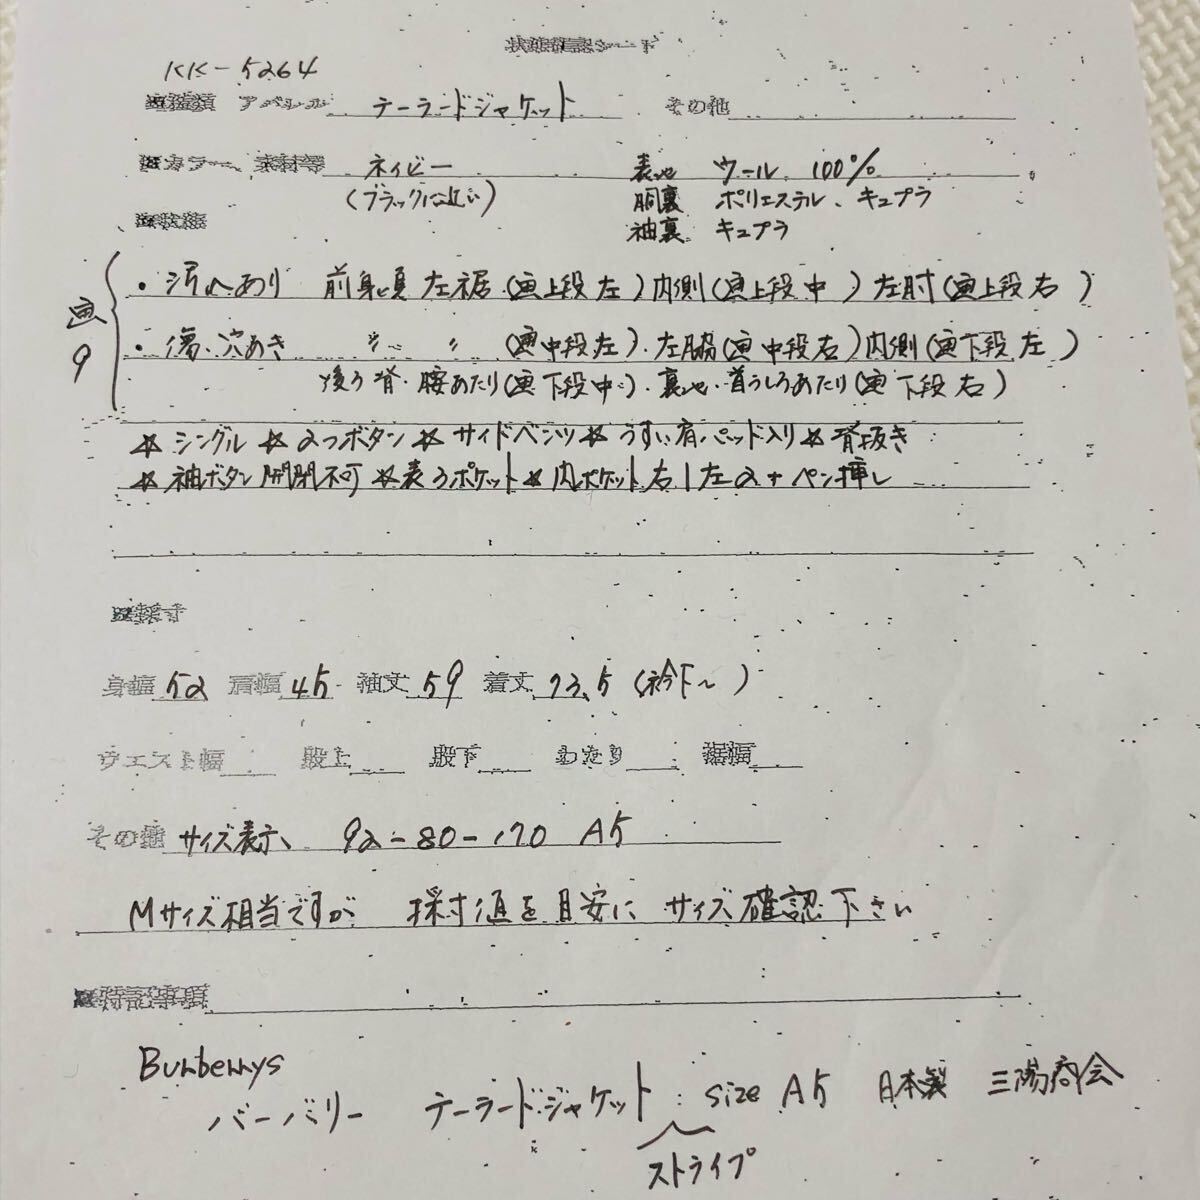 状態確認シート
KK-5264
■種類 アパレル テーラードジャケット その他
■カラー、素材等 ネイビー 表地 ウール 100%
(ブラックに近い) 胴裏 ポリエステル、キュプラ
■状態 袖裏 キュプラ
・汚れあり 前身頃 左裾(画上段左)内側(画上段中)左肘(画上段右)
画9
・傷・穴あき 〃 〃 (画中段左)、左脇(画中段右)内側(画下段左)
後ろ背・腰あたり(画下段中)、裏地・首うしろあたり(画下段右)
☆シングル ☆2つボタン ☆サイドベンツ ☆うすい肩パッド入り ☆背抜き
☆袖ボタン開閉不可 ☆表3ポケット ☆内ポケット右1左2+ペン挿し
■採寸
身幅52 肩幅45 袖丈59 着丈73.5(衿下~)
ウエスト幅 股上 股下 わたり 裾幅
その他 サイズ表示、92-80-170 A5
Mサイズ相当ですが 採寸値を目安に サイズ確認下さい
■特記事項
Burberrys
バーバリー テーラードジャケット size A5 日本製 三陽商会
ストライプ